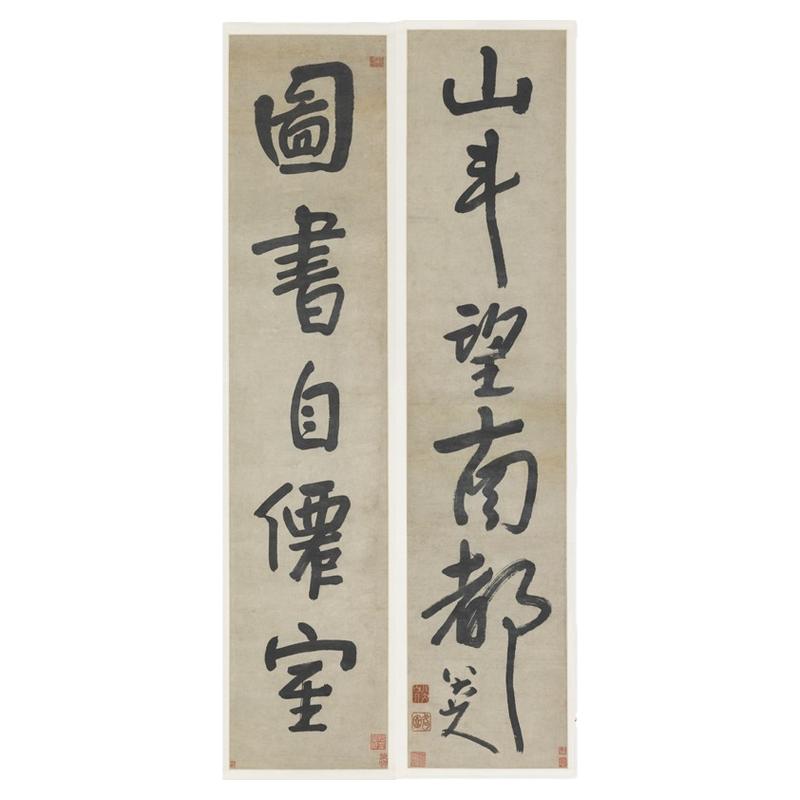 山斗望南都
八大山人
圖書自僊室